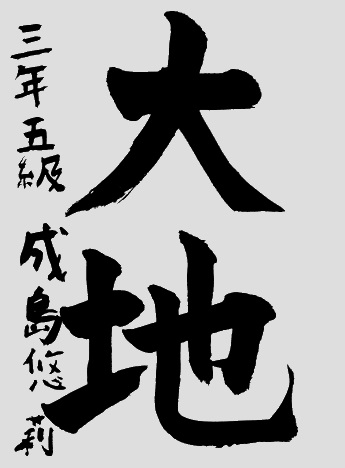 大地
三年五級 成島悠莉